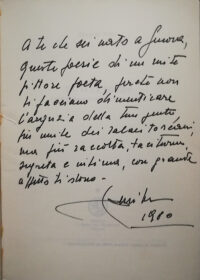 A te che sei nato a Genova,
queste poesie di un mite
pittore poeta, perché non
ti facciano dimenticare
l'arguzia della tua gente,
più umile dei palazzi toscani,
ma più raccolta, taciturna,
segreta e intima, con grande
affetto ti dono -
1980